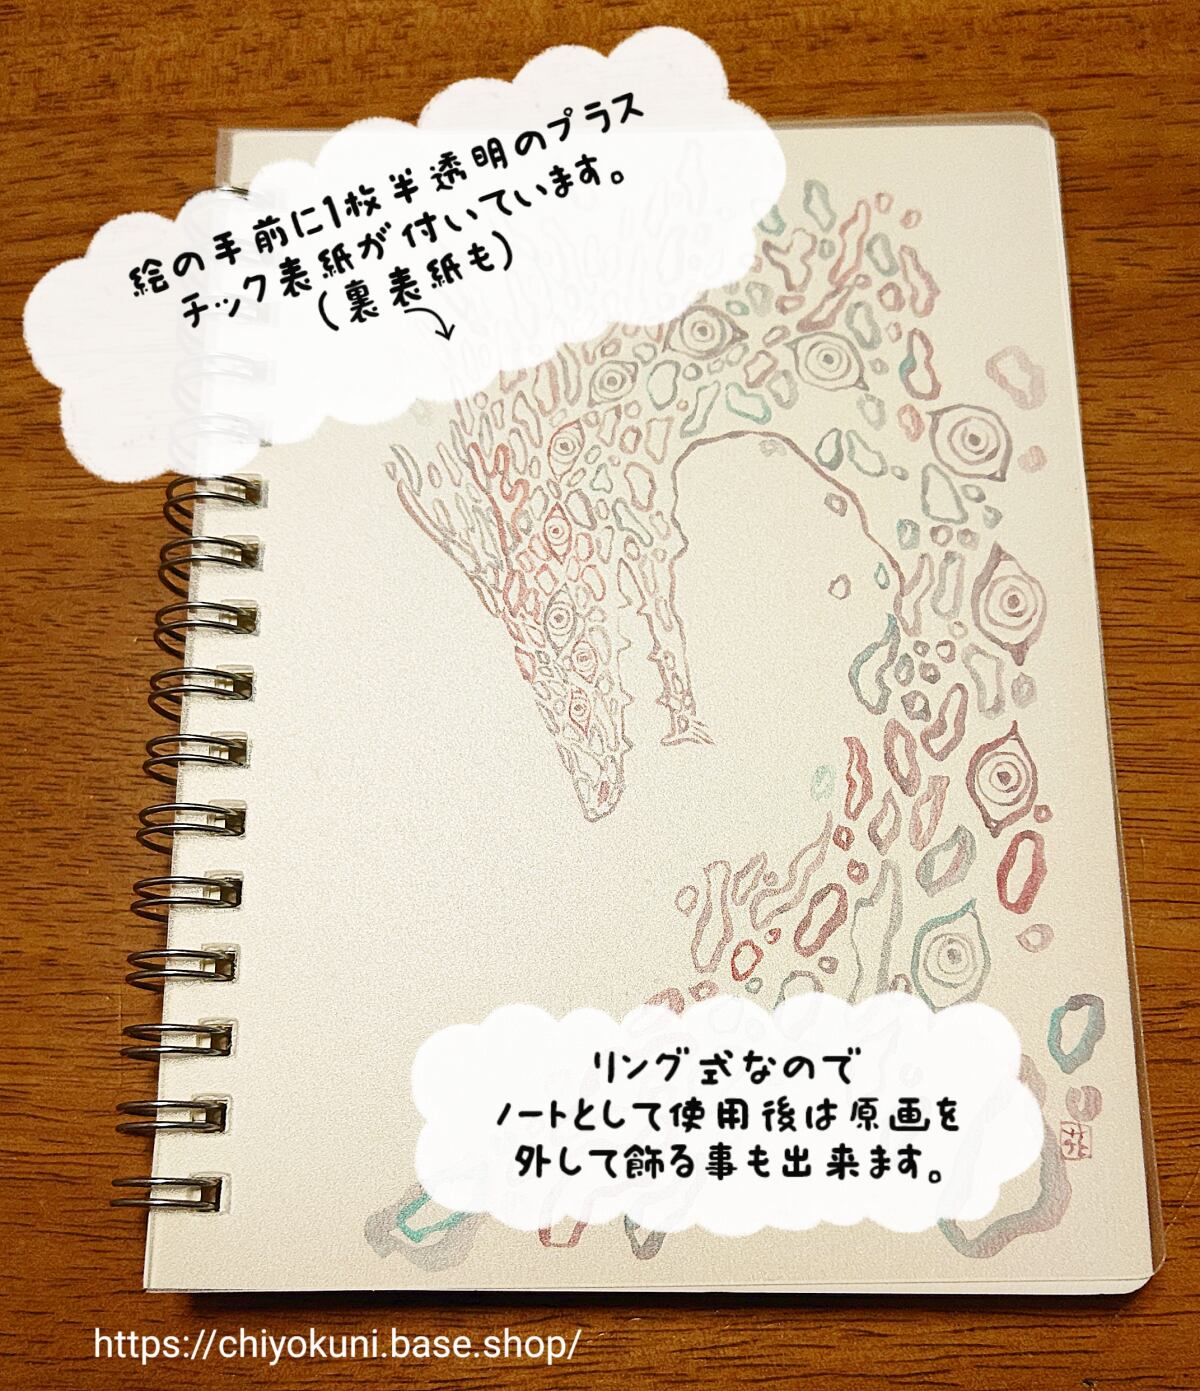 絵の手前に1枚半透明のプラス
チック表紙が付いています。
(裏表紙も)
リング式なので
ノートとして使用後は原画を
外して飾る事も出来ます。
https://chiyokuni.base.shop/